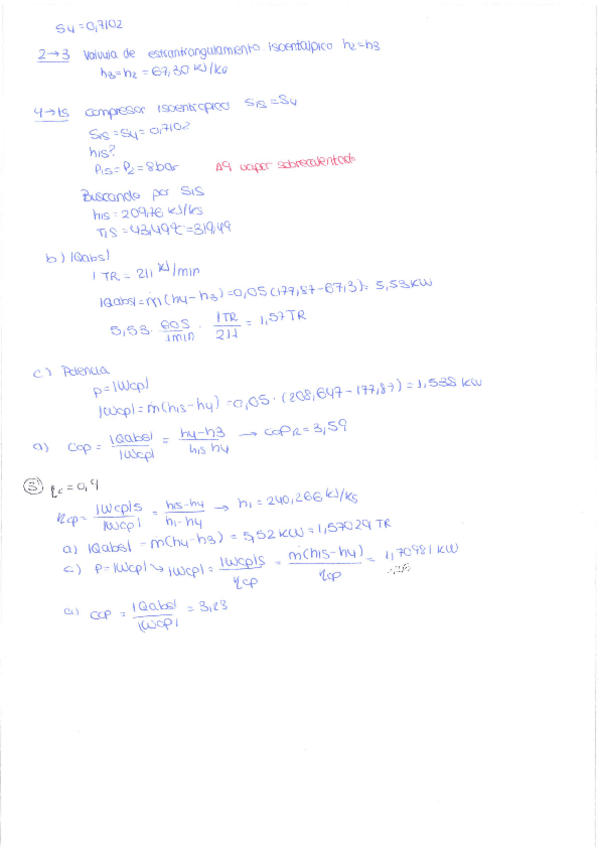 S4 = 0,7102
2→3 Valvula de estrantrangulamento isoentalpico h2=h3
h3=h2 = 67,30 kJ/kg
4→1s compresor isoentropico S1s = S4
S1s = S4 = 0,7102
h1s?
P1s = P2 = 8bar A9 vapor sobrecalentado
Buscando por S1s
h1s = 209,76 kJ/kg
T1s = 43,49ºC = 319,49
b) |Qabs|
1 TR = 211 kJ/min
|Qabs| = ṁ(h4-h3) = 0,05 (177,87-67,3) = 5,53 kW
5,53 · 60s/1min · 1TR/211 = 1,57 TR
c) Potencia
P = |Wcp|
|Wcp| = ṁ(h1s-h4) = 0,05 · (208,647-177,87) = 1,538 kW
a) COP = |Qabs|/|Wcp| = h4-h3/h1s h4 → COPR = 3,59
3 ηc = 0,9
ηcp = |Wcp|s/|Wcp| = h1s-h4/h1-h4 → h1 = 240,266 kJ/kg
a) |Qabs| - ṁ(h4-h3) = 5,52 kW = 1,57029 TR
c) P = |Wcp| → |Wcp| = |Wcp|s/ηcp = ṁ(h1s-h4)/ηcp = 1,70981 kW
a) COP = |Qabs|/|Wcp| = 3,23